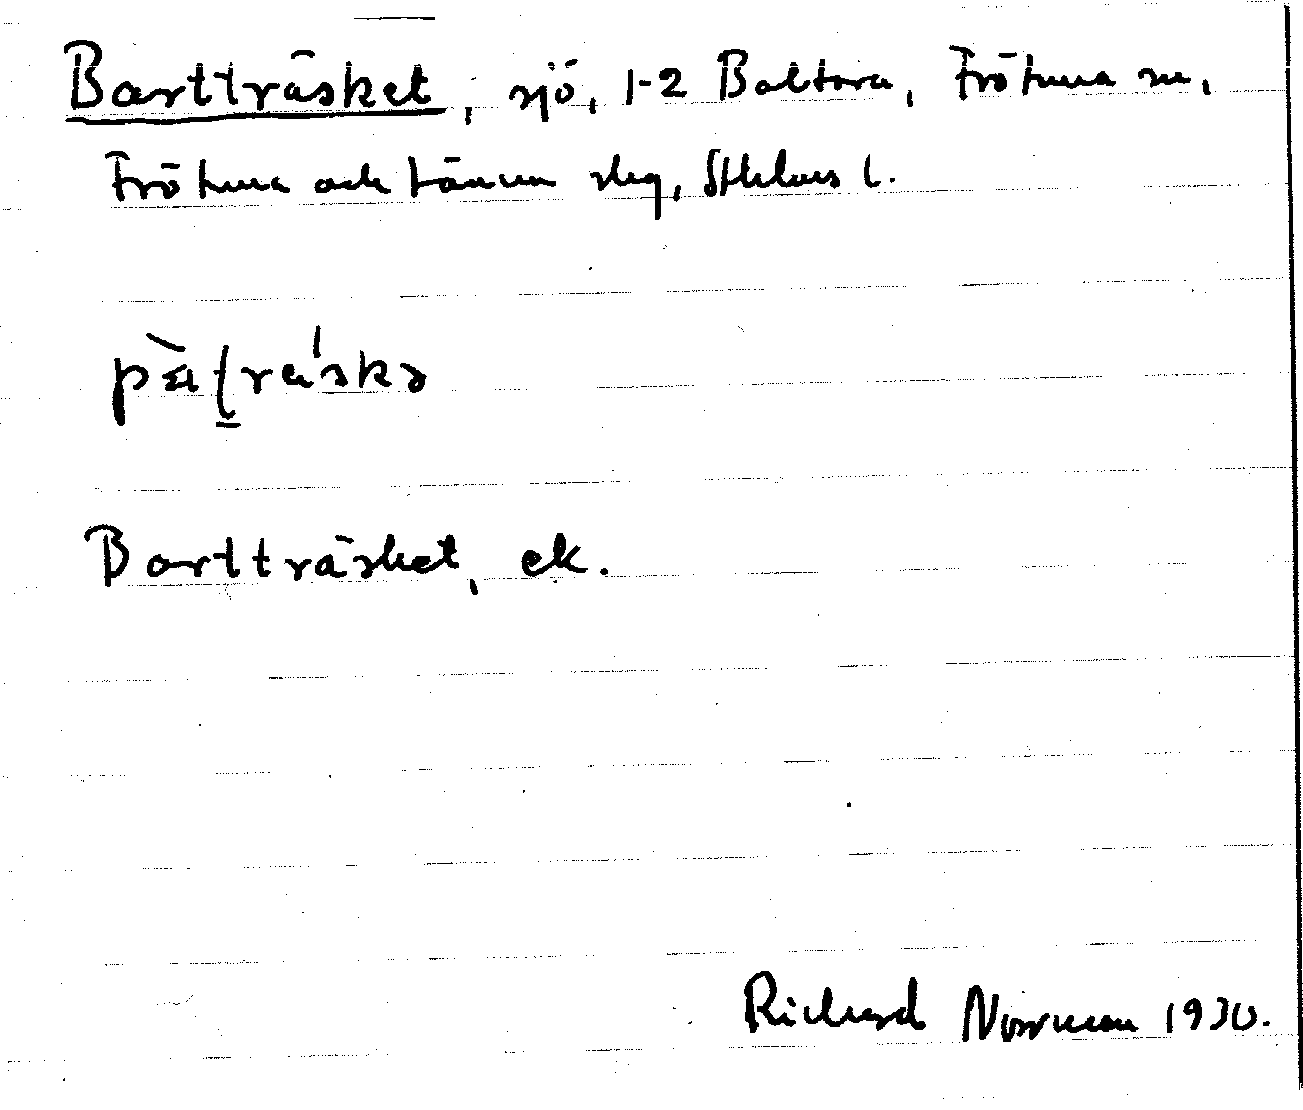 Bartträsket, sjö, 1-2 Baltora, Frötuna sn,
Frötuna och Länna skg, Sthlms l.
Bartträsket, ek.
Richard Norrman 1930.